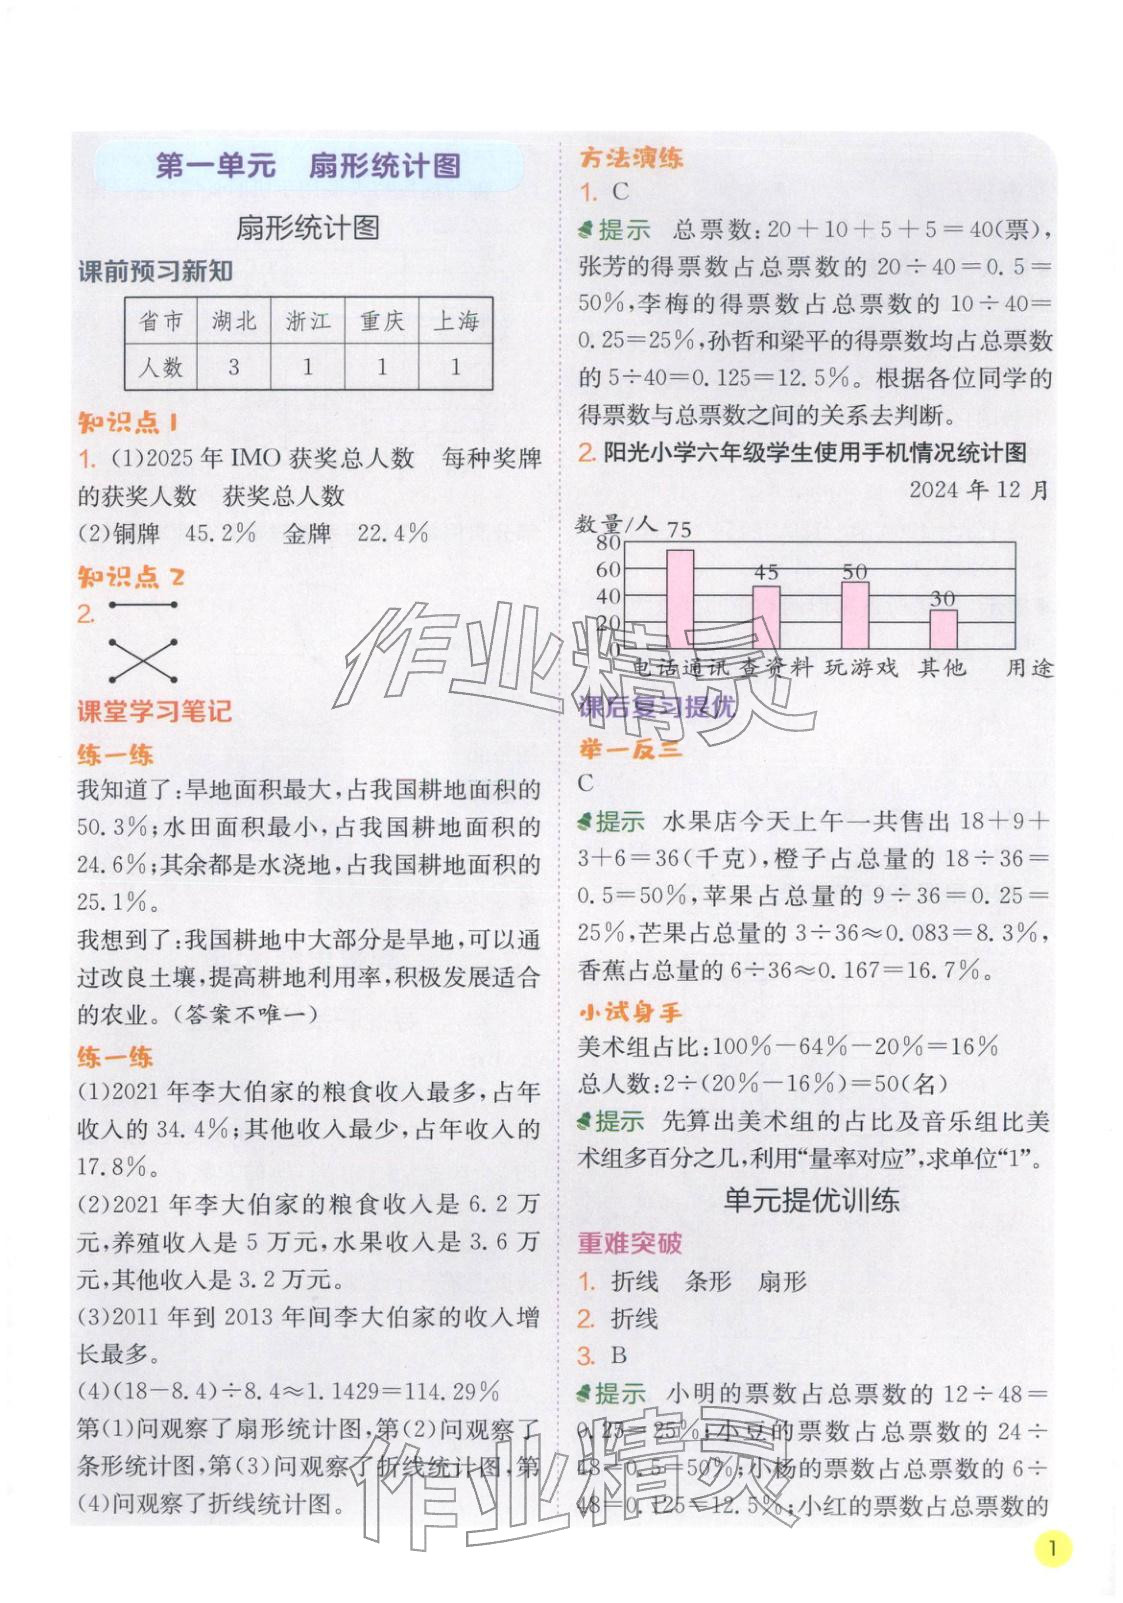 第一单元 扇形统计图
扇形统计图
课前预习新知
省市 湖北 浙江 重庆 上海
人数 3 1 1 1
知识点 1
1. (1)2025 年 IMO 获奖总人数 每种奖牌
的获奖人数 获奖总人数
(2)铜牌 45.2% 金牌 22.4%
知识点 2
2.
课堂学习笔记
练一练
我知道了:旱地面积最大,占我国耕地面积的
50.3%;水田面积最小,占我国耕地面积的
24.6%;其余都是水浇地,占我国耕地面积的
25.1%。
我想到了:我国耕地中大部分是旱地,可以通
过改良土壤,提高耕地利用率,积极发展适合
的农业。(答案不唯一)
练一练
(1)2021 年李大伯家的粮食收入最多,占年
收入的 34.4%;其他收入最少,占年收入的
17.8%。
(2)2021 年李大伯家的粮食收入是 6.2 万
元,养殖收入是 5 万元,水果收入是 3.6 万
元,其他收入是 3.2 万元。
(3)2011 年到 2013 年间李大伯家的收入增
长最多。
(4)(18-8.4)÷8.4≈1.1429=114.29%
第(1)问观察了扇形统计图,第(2)问观察了
条形统计图,第(3)问观察了折线统计图,第
(4)问观察了折线统计图。
方法演练
1. C
提示 总票数:20+10+5+5=40(票),
张芳的得票数占总票数的 20÷40=0.5=
50%,李梅的得票数占总票数的 10÷40=
0.25=25%,孙哲和梁平的得票数均占总票数
的 5÷40=0.125=12.5%。根据各位同学的
得票数与总票数之间的关系去判断。
2. 阳光小学六年级学生使用手机情况统计图
2024 年 12 月
数量/人
80
60
40
20
0
75
45
50
30
电话通讯 查资料 玩游戏 其他 用途
课后复习提优
举一反三
C
提示 水果店今天上午一共售出 18+9+
3+6=36(千克),橙子占总量的 18÷36=
0.5=50%,苹果占总量的 9÷36=0.25=
25%,芒果占总量的 3÷36≈0.083=8.3%,
香蕉占总量的 6÷36≈0.167=16.7%。
小试身手
美术组占比:100%-64%-20%=16%
总人数:2÷(20%-16%)=50(名)
提示 先算出美术组的占比及音乐组比美
术组多百分之几,利用“量率对应”,求单位“1”。
单元提优训练
重难突破
1. 折线 条形 扇形
2. 折线
3. B
提示 小明的票数占总票数的 12÷48=
0.25=25%;小豆的票数占总票数的 24÷
48=0.5=50%;小杨的票数占总票数的 6÷
48=0.125=12.5%;小红的票数占总票数的
1
作业精灵
作业精灵